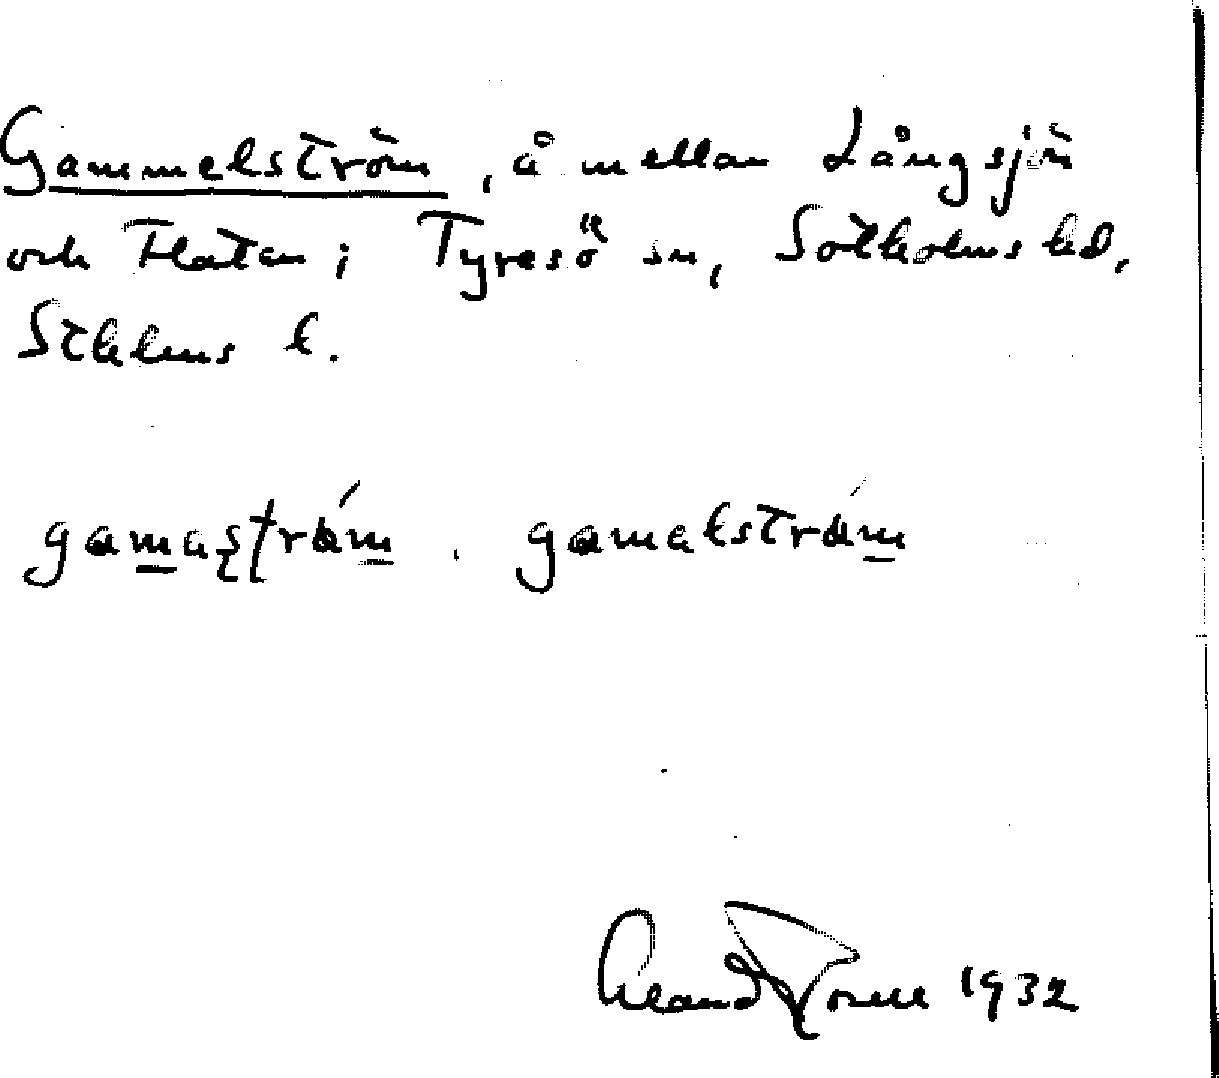 Gammelström, å mellan Långsjön
och Flaten i Tyresö sn, Sotholms hd,
Sthlms l.
gamaström . gamalström
1932